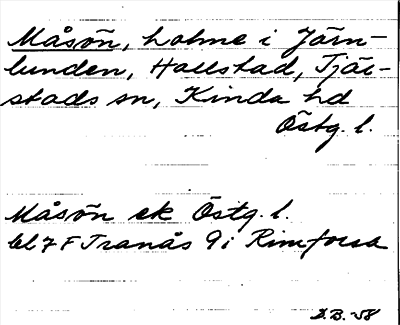 Måsön, holme i Järn-
lunden, Hallstad, Tjär-
stads sn, Kinda hd
Östg. l.
Måsön ek Östg. l.
bl 7 F Tranås 9 i Rimforsa
D.B. -58